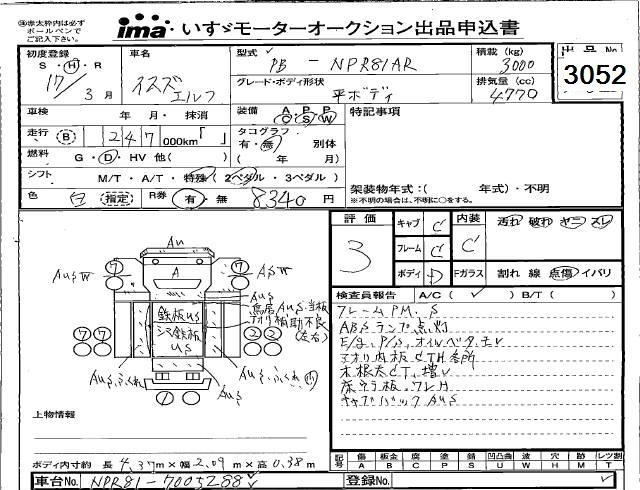 ㊟赤太枠内は必ず
ボールペンで
ご記入下さい。
ima いすゞモーターオークション出品申込書
初度登録 車名 型式 積載 (kg) 出品No.
S・H・R イスズ PB - NPR81AR 3000
17/3月 エルフ グレード・ボディ形状 排気量 (cc) 3052
平ボディ 4770
車検 年・月・抹消 装備 A P P 特記事項
C S W
走行 B 247 000km「 」 タコグラフ
有・無 別体
燃料 G・D・HV 他( ) ( 年 月)
シフト M/T・A/T・特殊(2ペダル・3ペダル)
架装物年式:( 年式)・不明
色 白 (指定) R券 有・無 8340円 ※不明の場合は、不明に○をする。
評価 キャブ C 内装 汚れ 破れ ヤニ スレ
3 フレーム C C
ボディ D Fガラス 割れ 線 点傷 イバリ
検査員報告 A/C( ✓ ) B/T( )
フレームPM.S
ABSランプ点灯
E/g.P/s.オイルベタ
アオリ内板CTH各所
キャブバックAUS
An
AUSW ⑦ A ⑦ AUSW
AUS
鉄板US
シマ鉄板
US
鳥居 AUS.当板
アオリ補助不良
(左右)
⑦⑦ ②②
上物情報
ボディ内寸 約 長 4.37m×幅 2.09m×高 0.38m
記号 傷 板金 腐 塗 錆 凹凸曲 波 穴 跡 レツ割
A B C P S U W H M T
車台No. NPR81-7005288 登録No.